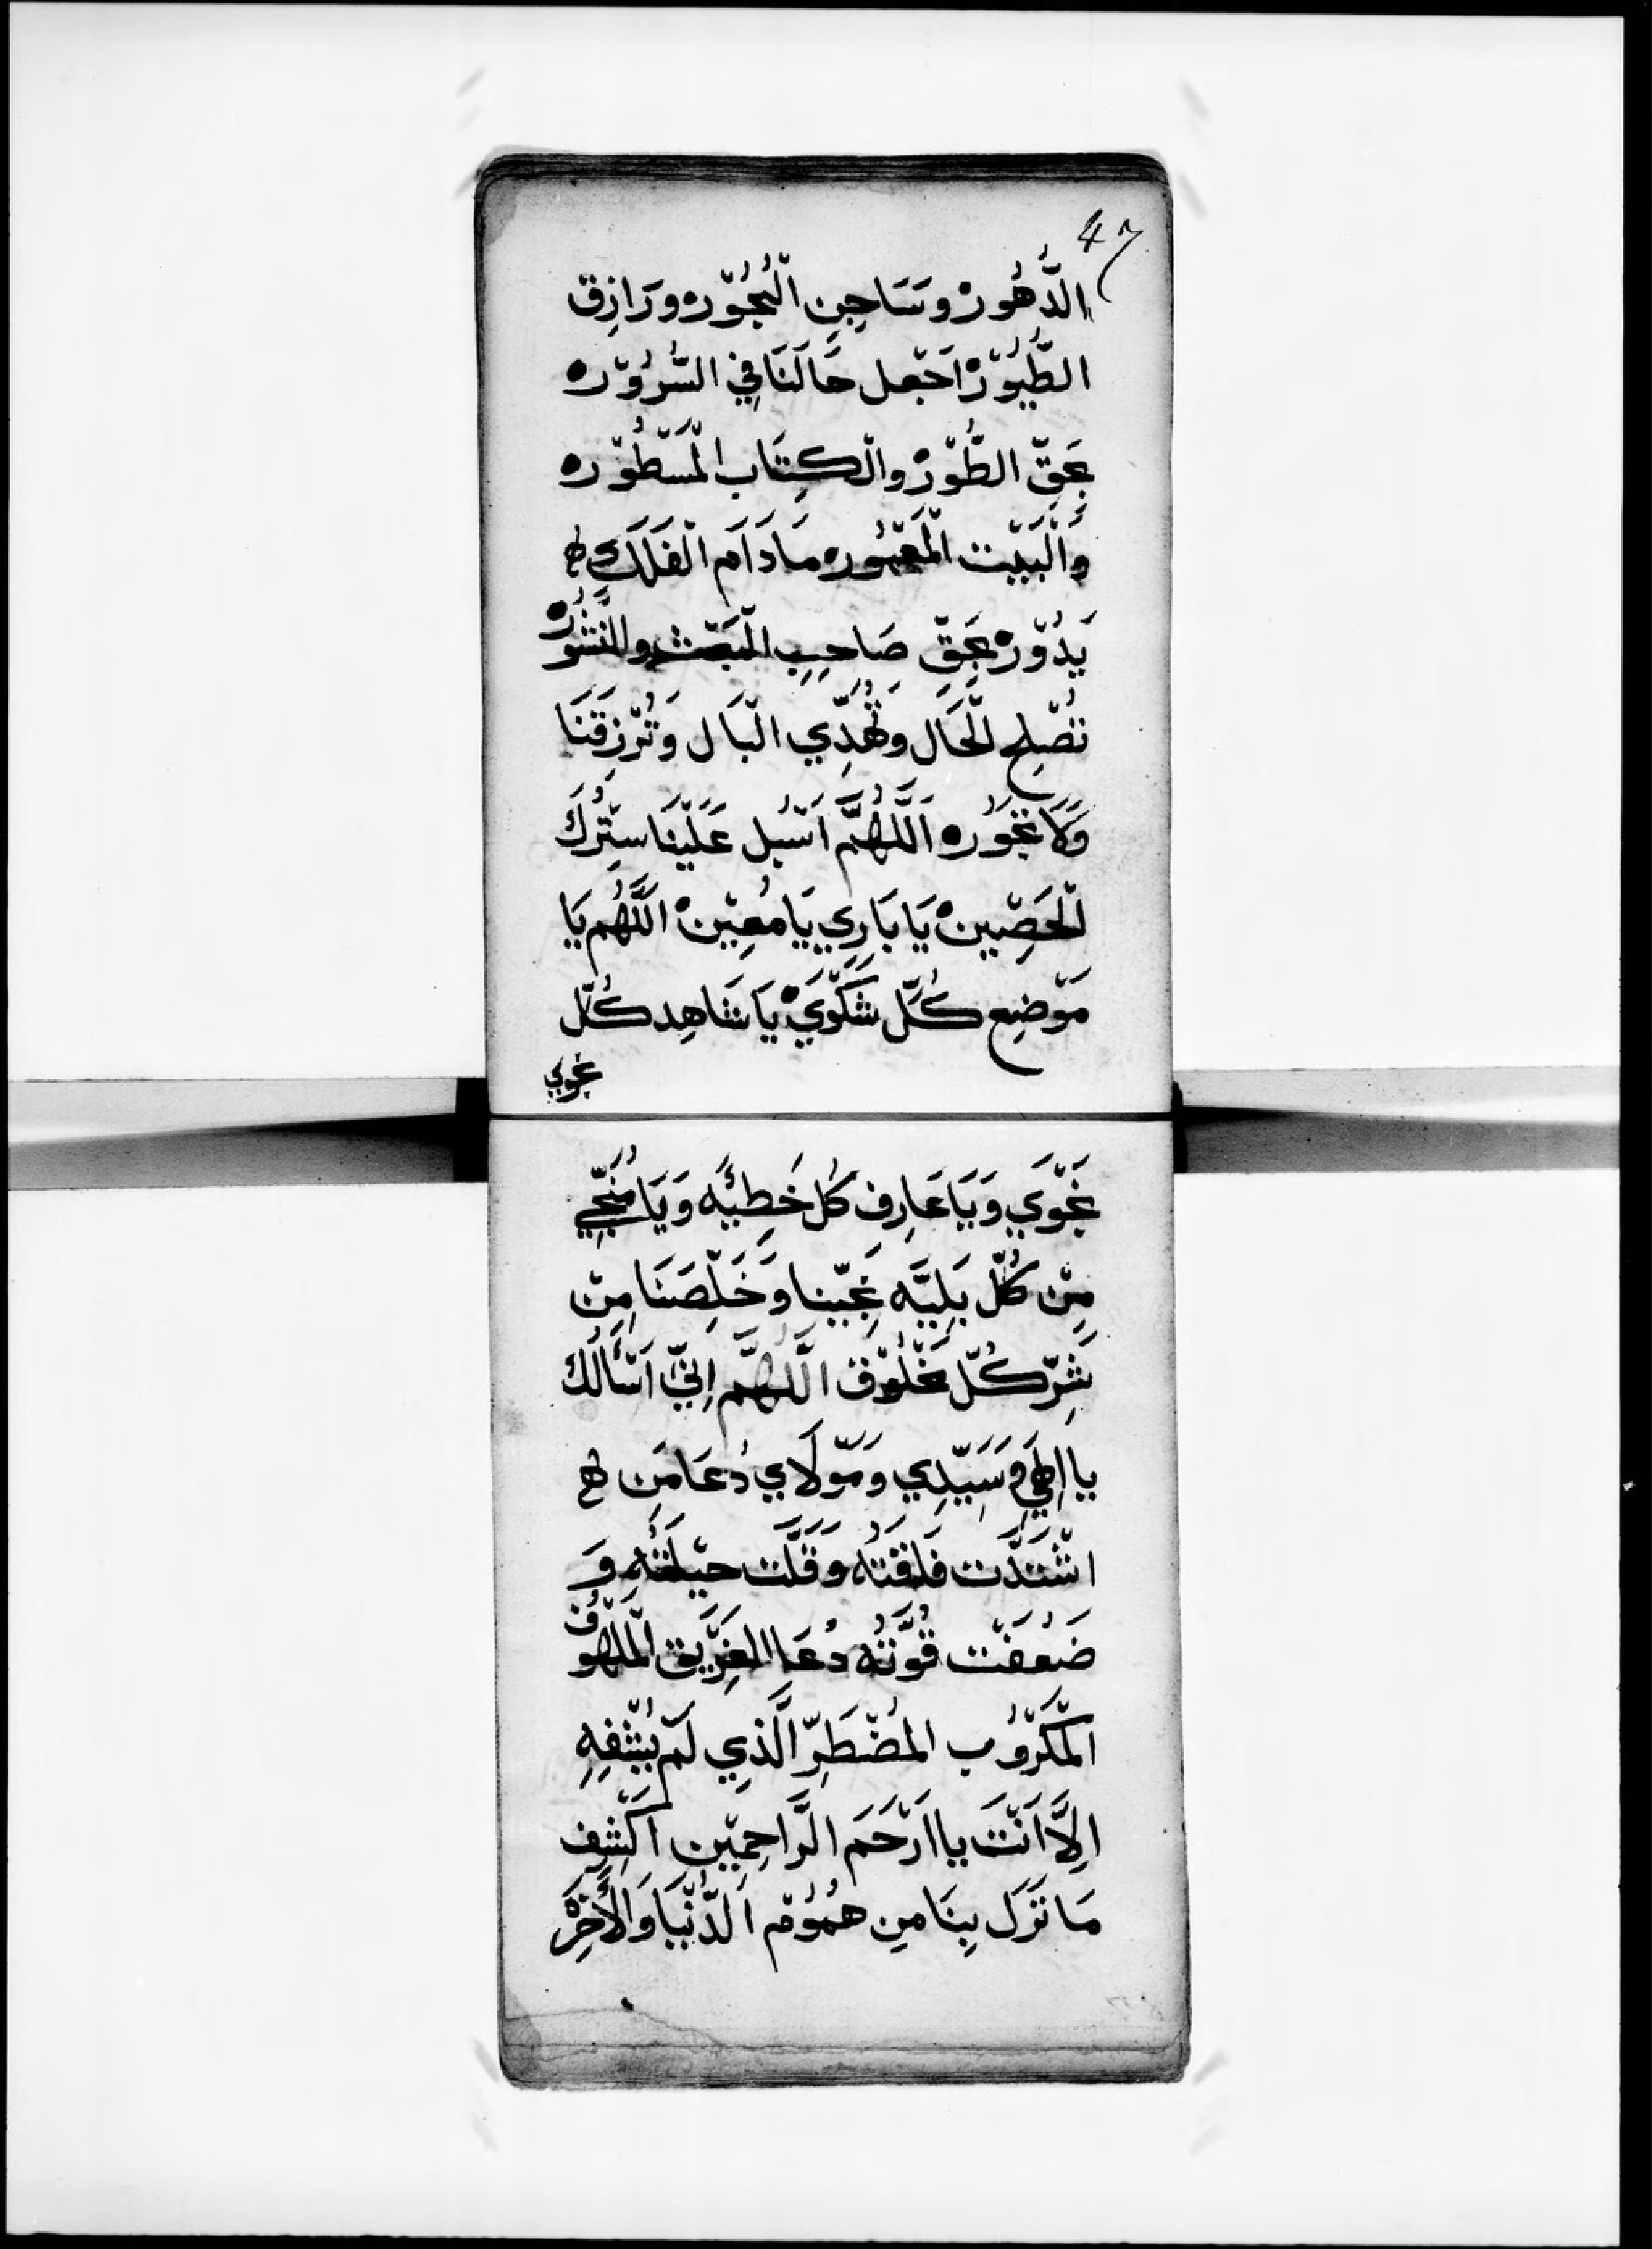 47
الدُّهُورْ ۞ وسَاجِنِ الْبُحُوْر ۞ ورَازِق
الطُّيُوْرْ ۞ اَجْعل حَالَنَا فِي السُّرُوْر ۞
بحَقِّ الطُّوْرْ ۞ والْكِتَاب الْمَسْطُوْر ۞
وِالْبَيْت الْمَعْمُور ۞ مَا دَاَم الْفَلَك
يَدُوْر ۞ بحَقِّ صَاحِبِ الْبَعْث والنُّشُوْرْ ۞
تُصْلِح الْحَال وَتُهَدِّي الْبَال وَتُرْزِقَنَا
وَلَا نَجُوْر ۞ اَللَّهُمَّ اَسْبُل عَلَيْنَا سِتْرُكَ
الْحَصِيْن ۞ يَا بَارِي يَا مُعِيْن ۞ اللَّهُم يَا
مَوْضِع كُلّ شَكْوَيْ ۞ يَا شَاهِد كُلّ
نجوي
نَجْوَي وَيَا عَارِف كُل خَطِيئَه وَيَا مُنَجِّي
مِنْ كُلّ بَلِيَّه نَجِّينا وَخَلِّصَنَا مِنْ
شَرِّ كُلّ مَخْلُوْق اللَّهُمَّ اِنِّي اَسْأَلُك
يا اِلهِي وَسَيِّدِي وَمَوْلَاي دُعَا مَن
اشْتَدَّت فَاقَتُه وَقَلَّت حِيْلَتُه وَ
ضَعُفَت قُوَّتُه دُعَا الغَرِيْق الْمَلْهُوْف
الْمَكْرُوْب المُضْطَرِّ الَّذِي لَمْ يُشْفِهِ
اِلَّا اَنْتَ يا ارْحَمَ الرَّاحِمِيْن اَكْشِف
مَا نَزَل بِنَا مِن هُمُوْم الدُّنْيَا وَالْأَخِرَهْ